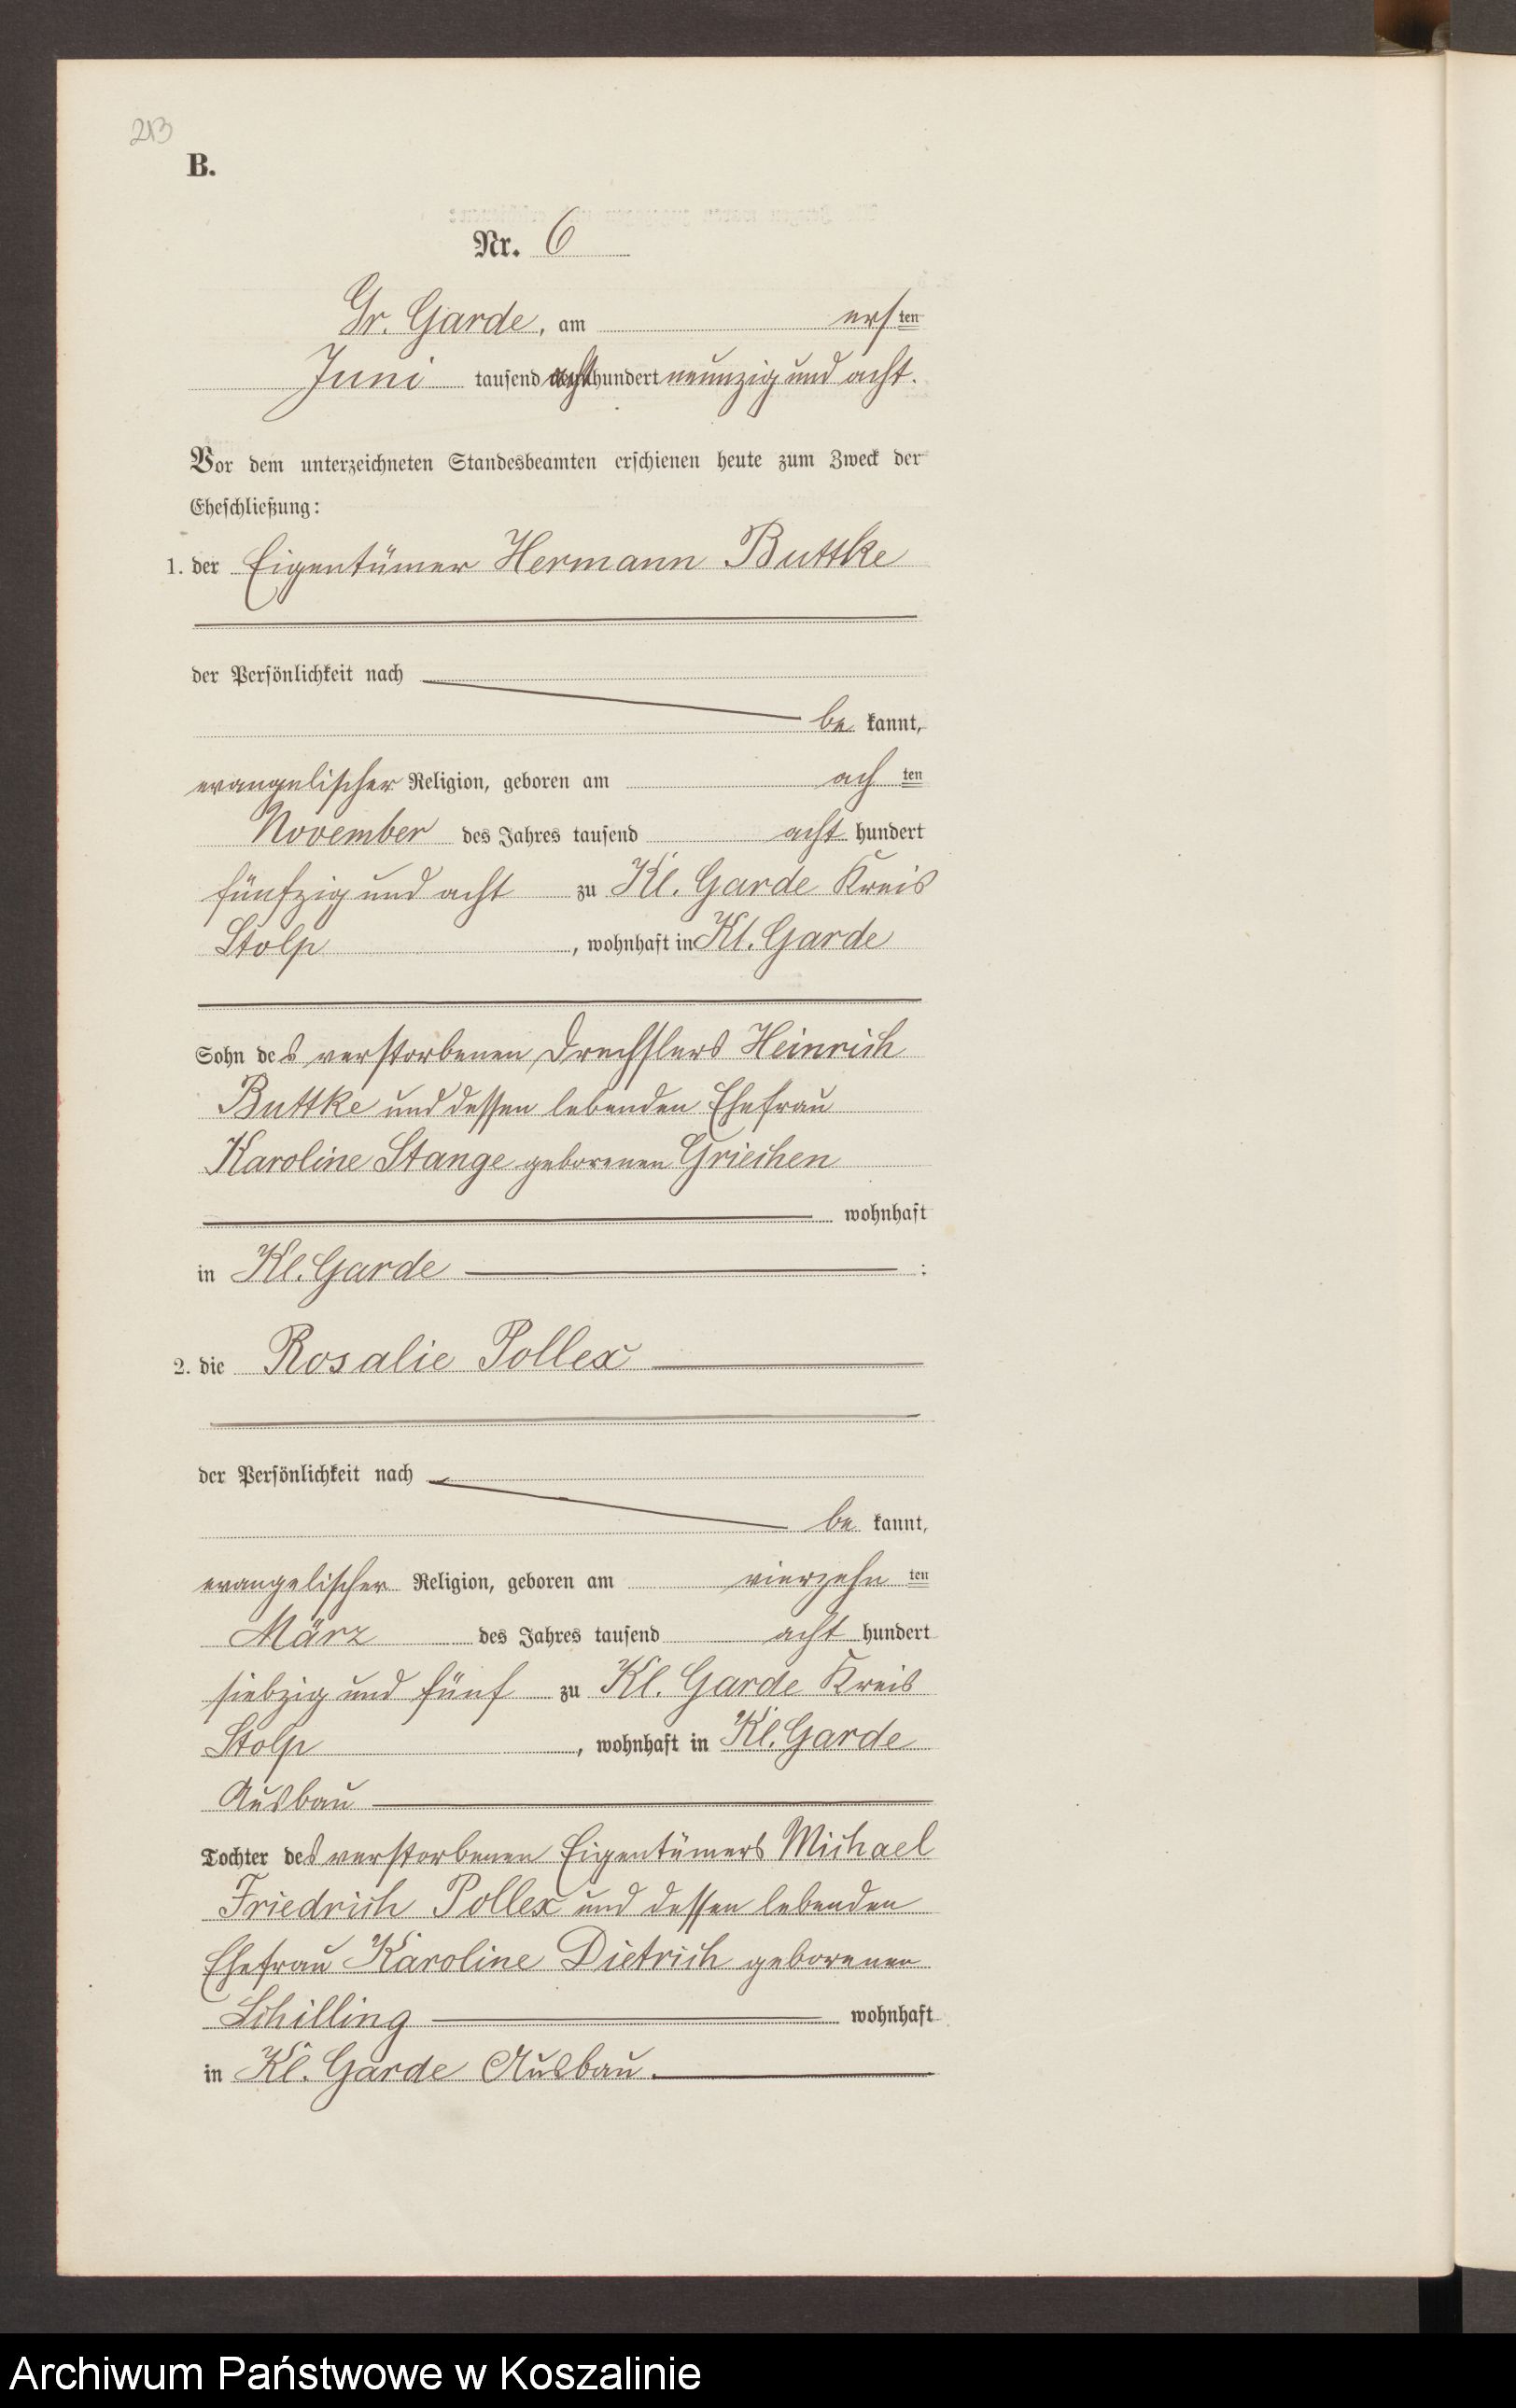 213
B.
Nr. 6
Gr. Garde, am ersten
Juni tausend achthundert neunzig und acht.
Vor dem unterzeichneten Standesbeamten erschienen heute zum Zweck der
Eheschließung:
1. der Eigentümer Hermann Buttke
der Persönlichkeit nach
be kannt,
evangelischer Religion, geboren am ach ten
November des Jahres tausend acht hundert
fünfzig und acht zu Kl. Garde Kreis
Stolp, wohnhaft in Kl. Garde
Sohn des verstorbenen Drechslers Heinrich
Buttke und dessen lebenden Ehefrau
Karoline Stange geborenen Griechen
wohnhaft
in Kl. Garde :
2. die Rosalie Pollex
der Persönlichkeit nach
be kannt,
evangelischer Religion, geboren am vierzehn ten
März des Jahres tausend acht hundert
siebzig und fünf zu Kl. Garde Kreis
Stolp, wohnhaft in Kl. Garde
Ausbau
Tochter des verstorbenen Eigentümers Michael
Friedrich Pollex und dessen lebenden
Ehefrau Karoline Dietrich geborenen
Schilling wohnhaft
in Kl. Garde Ausbau.
Archiwum Państwowe w Koszalinie